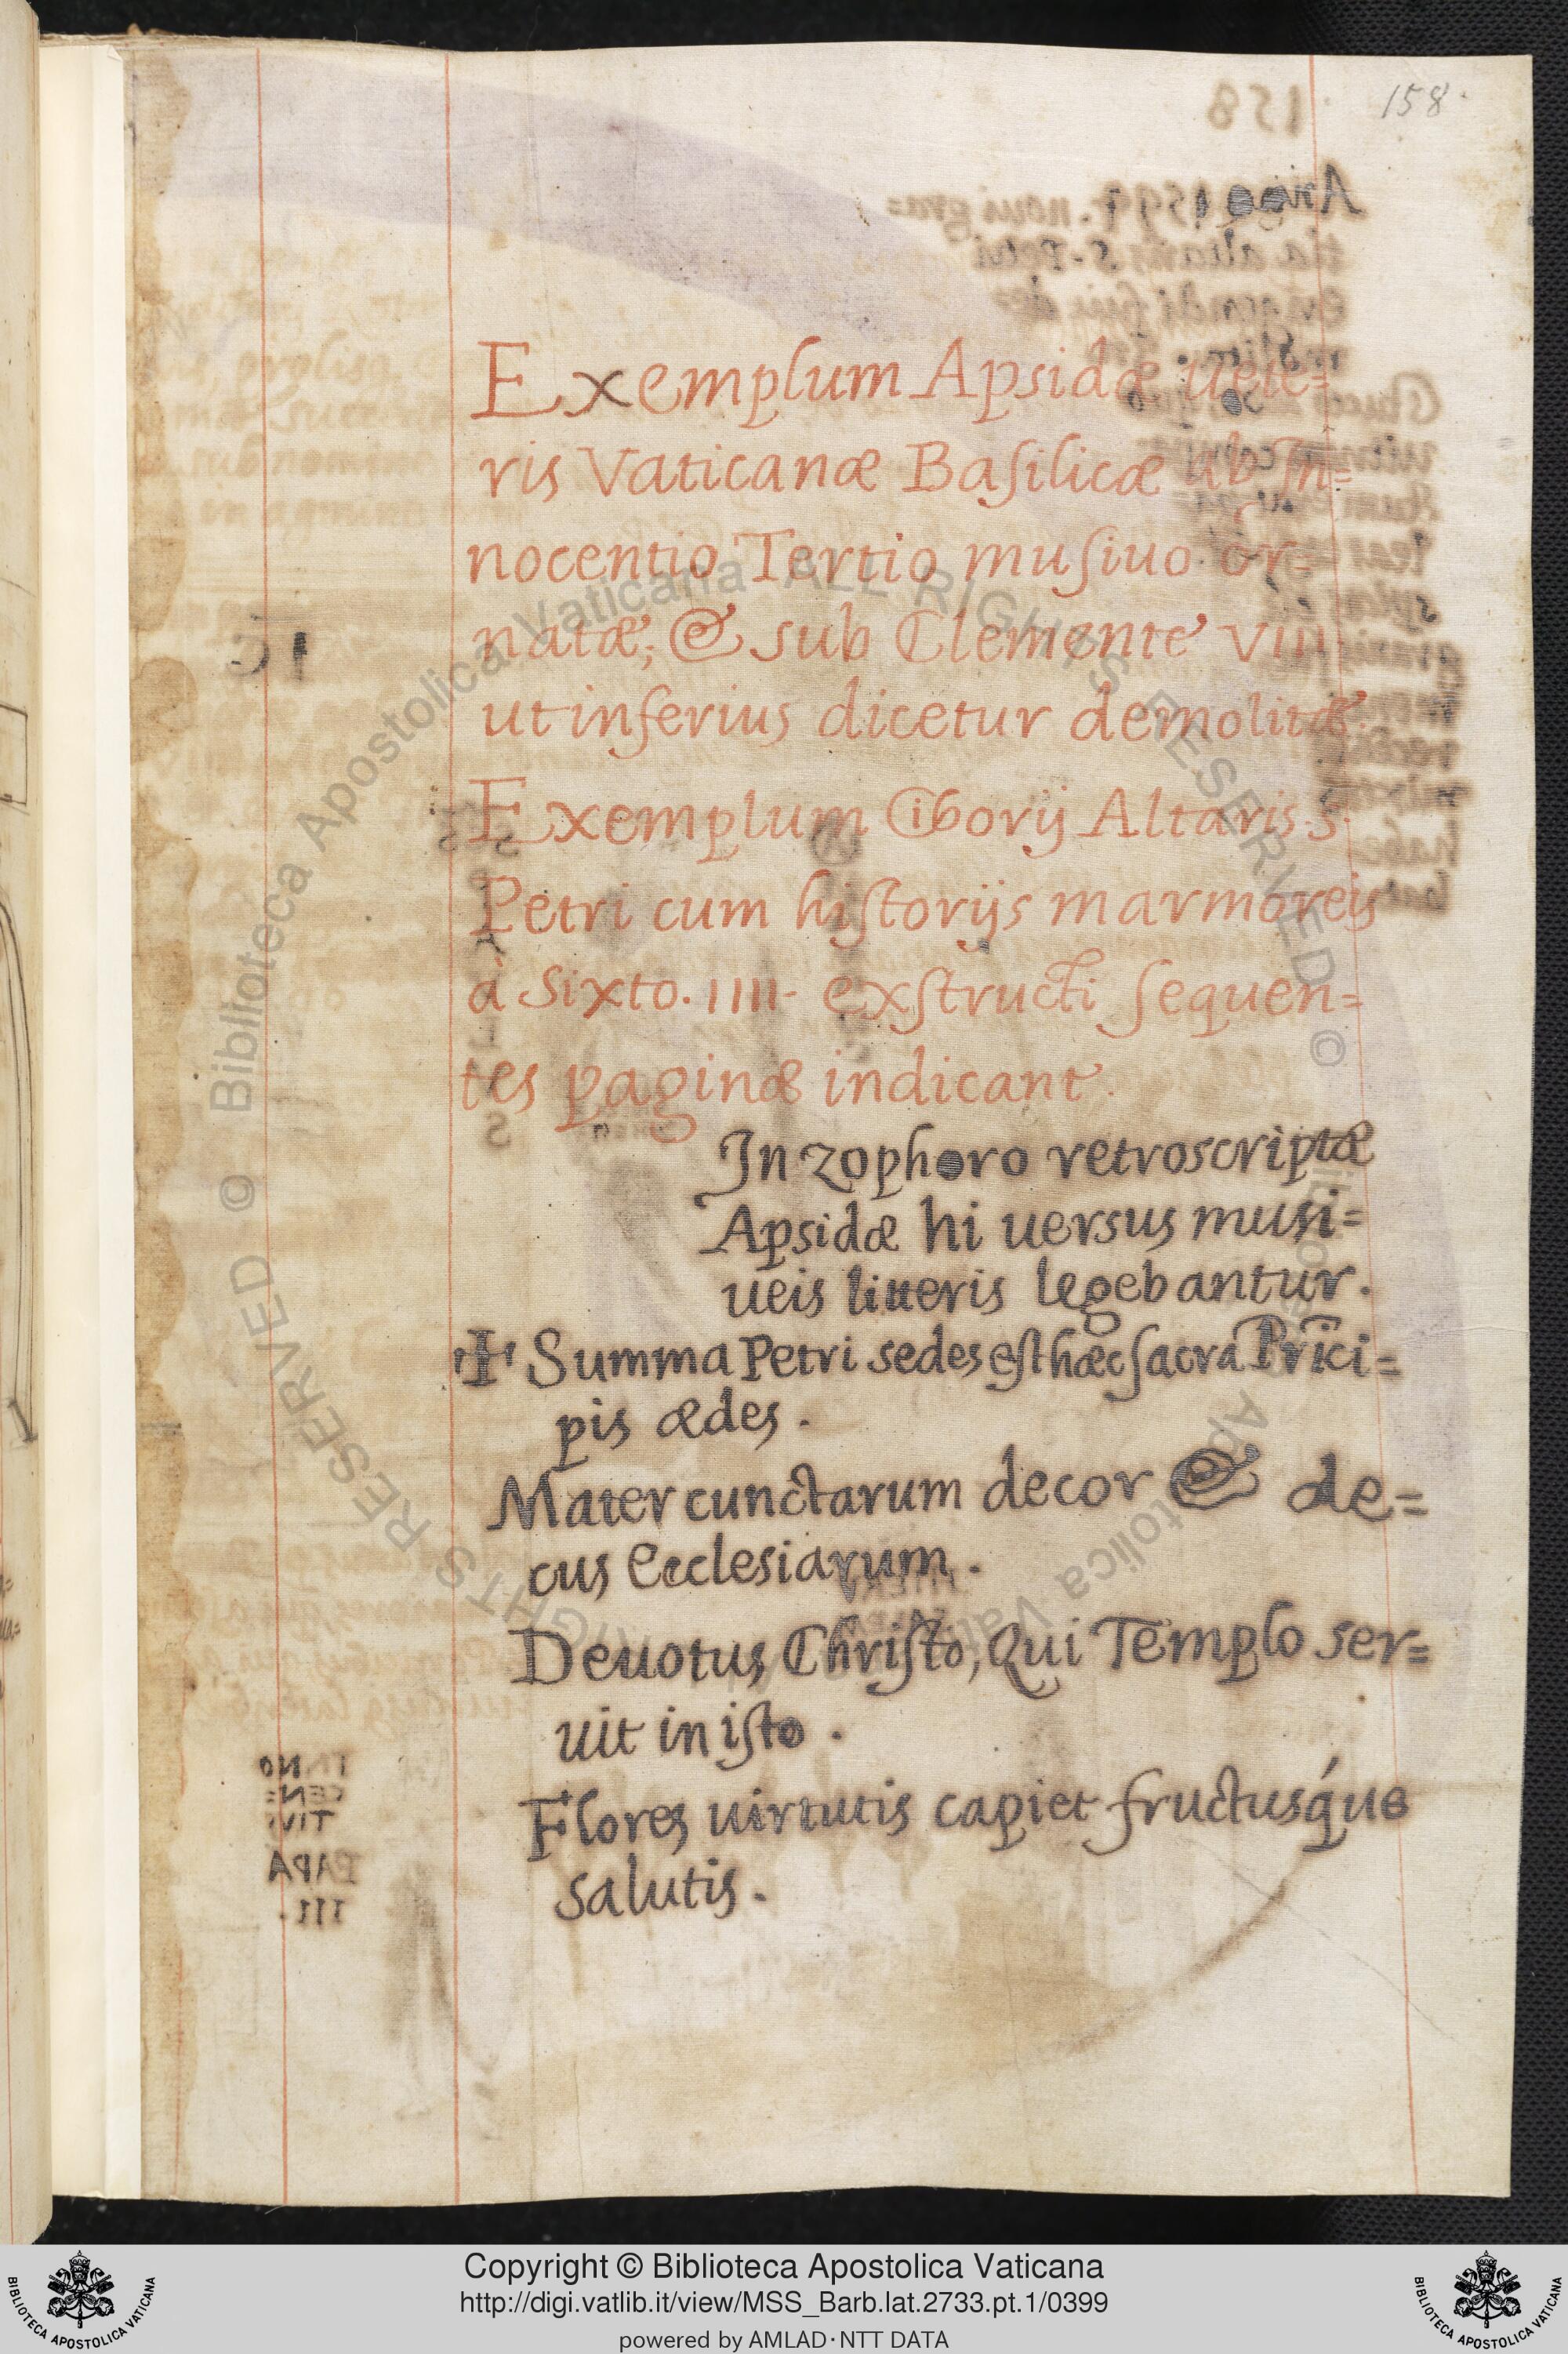 158.
Exemplum Apsidæ uete=
ris Vaticanæ Basilicæ ab In=
nocentio Tertio musiuo or=
natæ, & sub Clemente VIII
ut inferius dicetur demolitæ.
Exemplum Ciborij Altaris s.
Petri cum historijs marmoreis
à Sixto. IIII. exstructi sequen=
tes paginæ indicant.
In zophoro retroscriptæ
Apsidæ hi uersus musi=
ueis litteris legebantur.
✝ Summa Petri sedes est hæc sacra Prīci=
pis ædes.
Mater cunctarum decor & de=
cus Ecclesiarum.
Deuotus Christo, Qui Templo ser=
uit in isto.
Flores uirtutis capiet fructusq́ue
salutis.
© Biblioteca Apostolica Vaticana ALL RIGHTS RESERVED ©
Copyright © Biblioteca Apostolica Vaticana
http://digi.vatlib.it/view/MSS_Barb.lat.2733.pt.1/0399
powered by AMLAD·NTT DATA
BIBLIOTECA APOSTOLICA VATICANA
BIBLIOTECA APOSTOLICA VATICANA